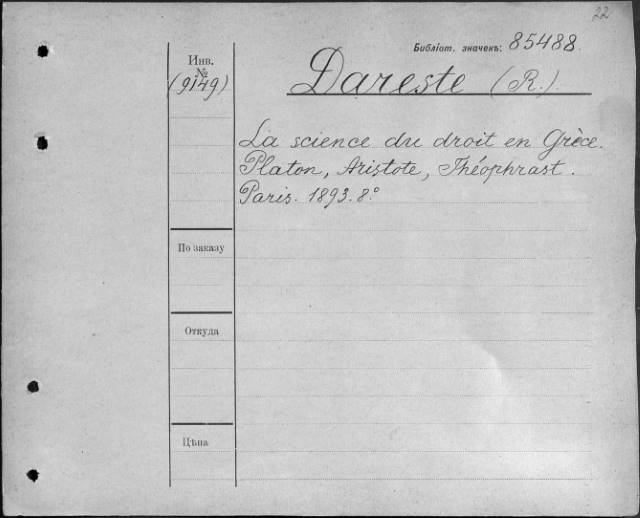 22
Библіот. значекъ: 85488.
Инв.
№
(9149)
Dareste (R.).
La science du droit en Grèce.
Platon, Aristote, Théophrast.
Paris. 1893. 8.°
По заказу
Откуда
Цѣна